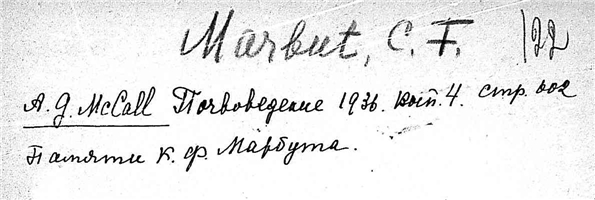 Marbut, C. F. 122
A. G. McCall Почвоведение 1936. вып. 4. стр. 602
Памяти К. Ф. Марбута.